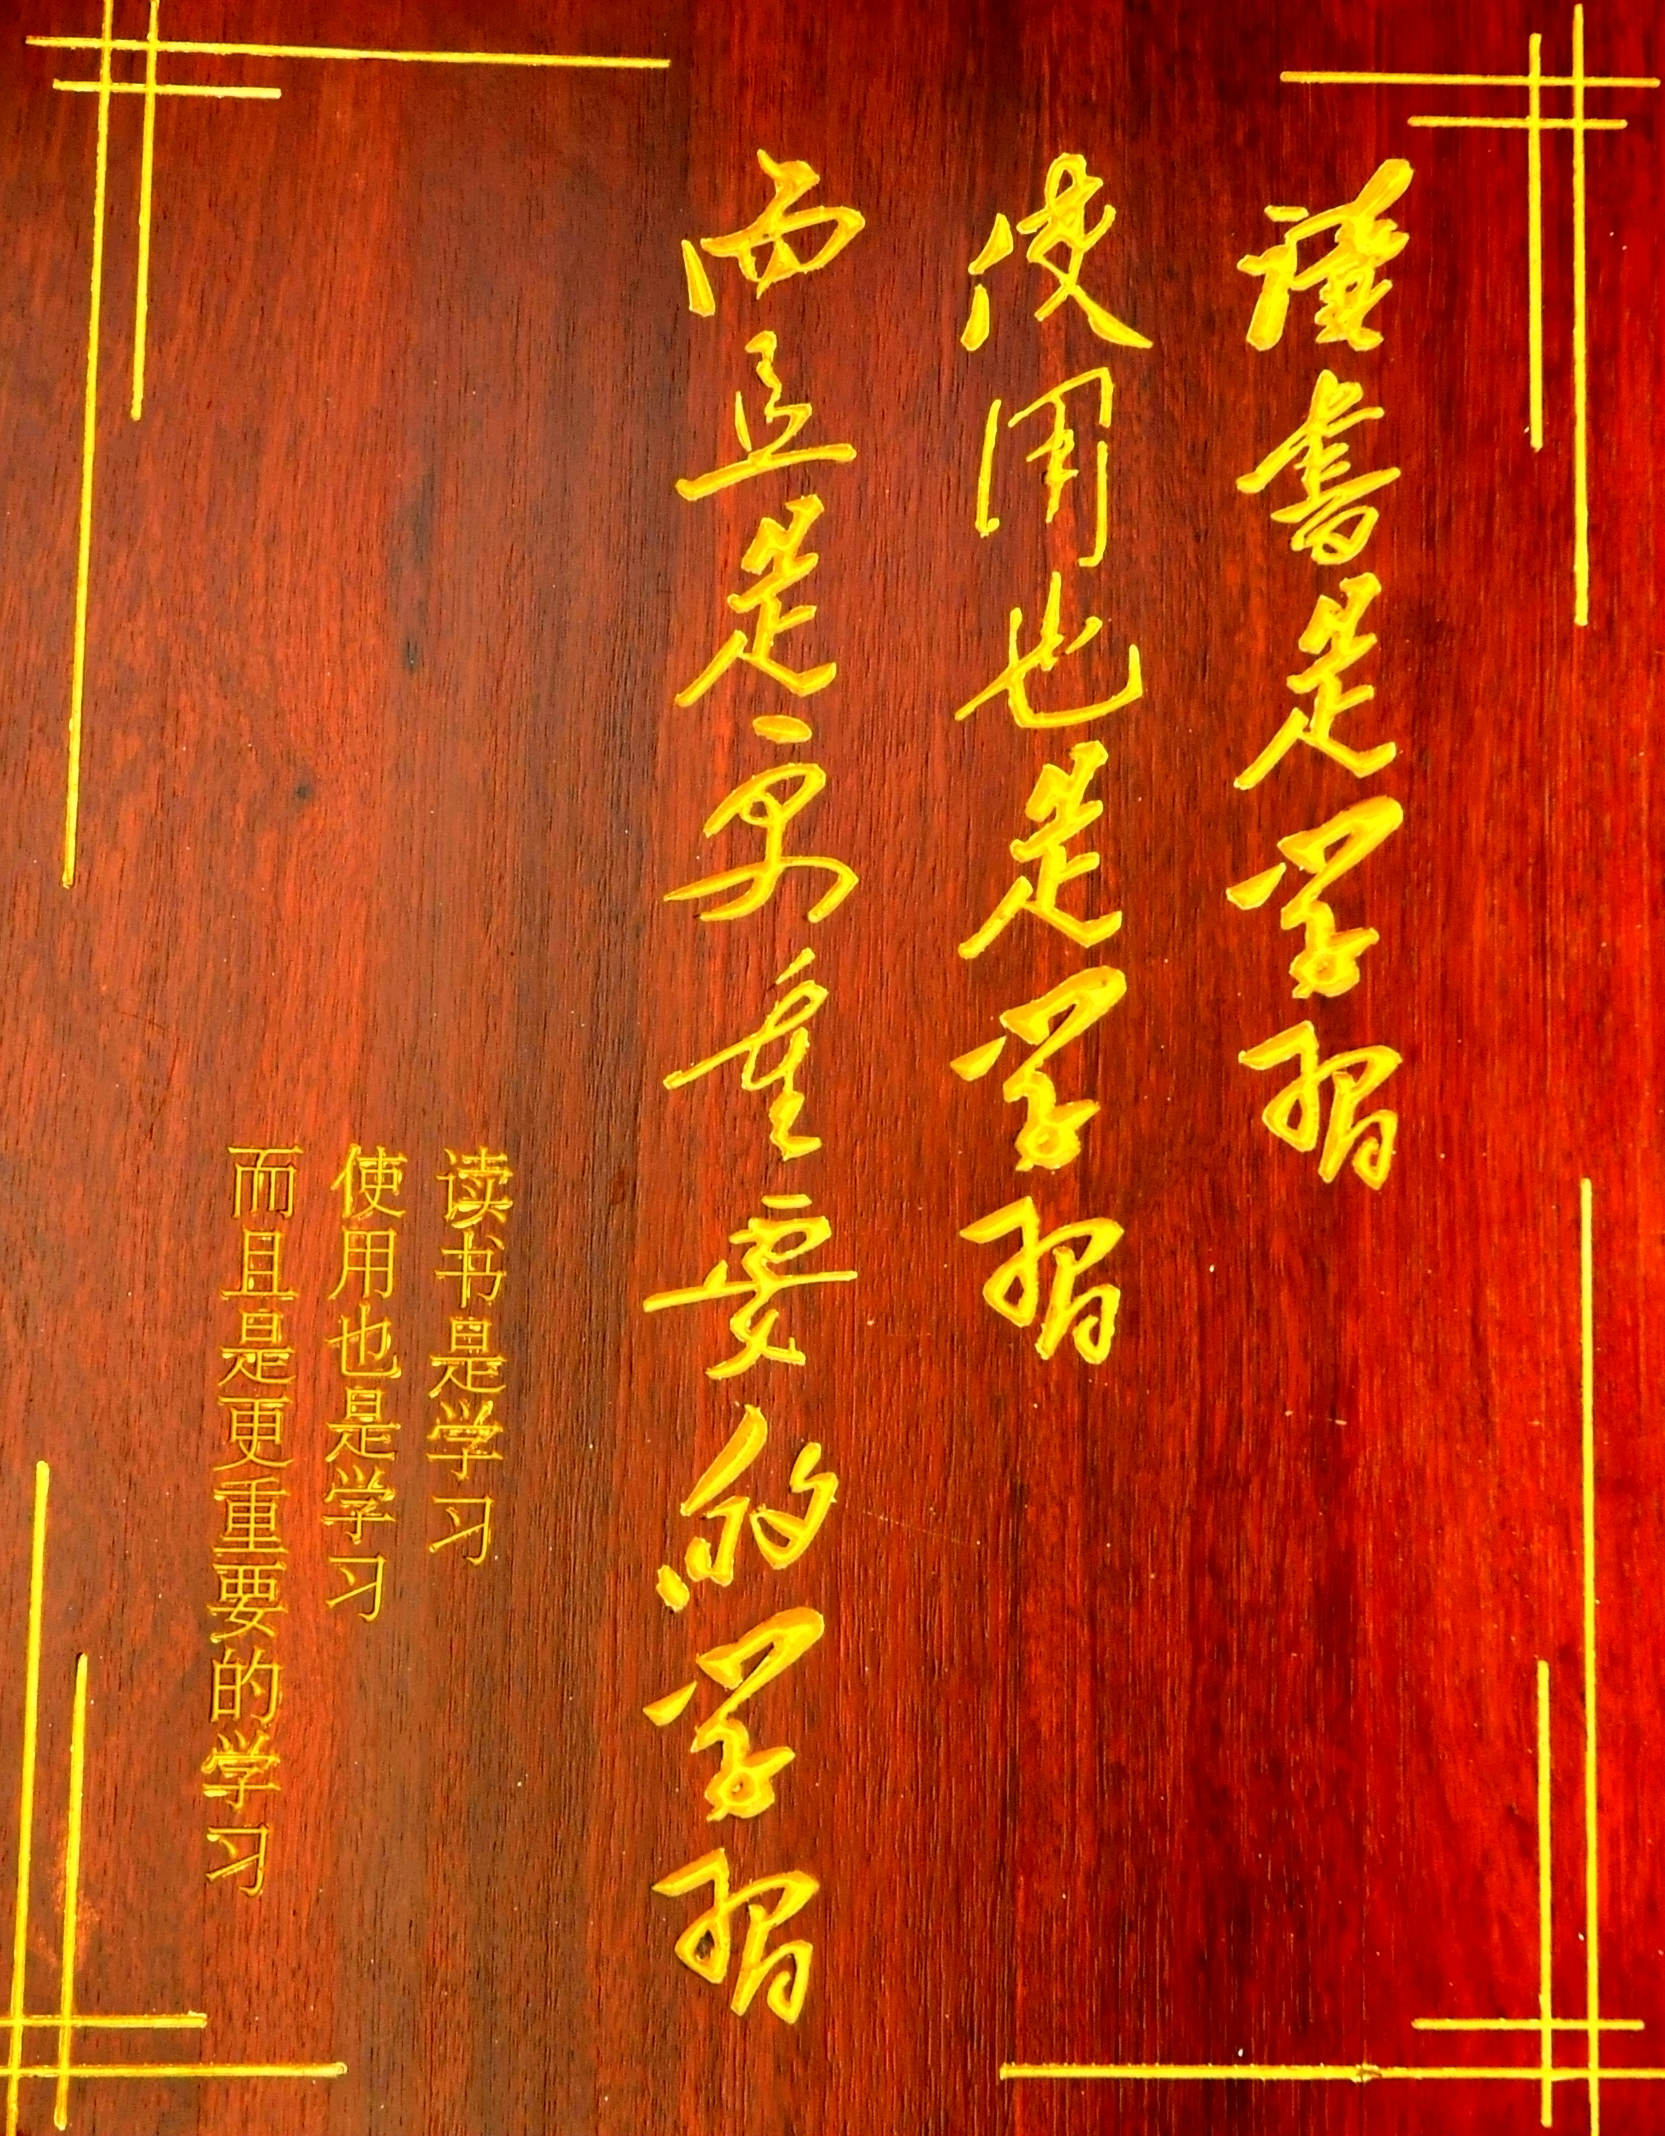 讀書是学習
使用也是学習
而且是更重要的学習
读书是学习
使用也是学习
而且是更重要的学习